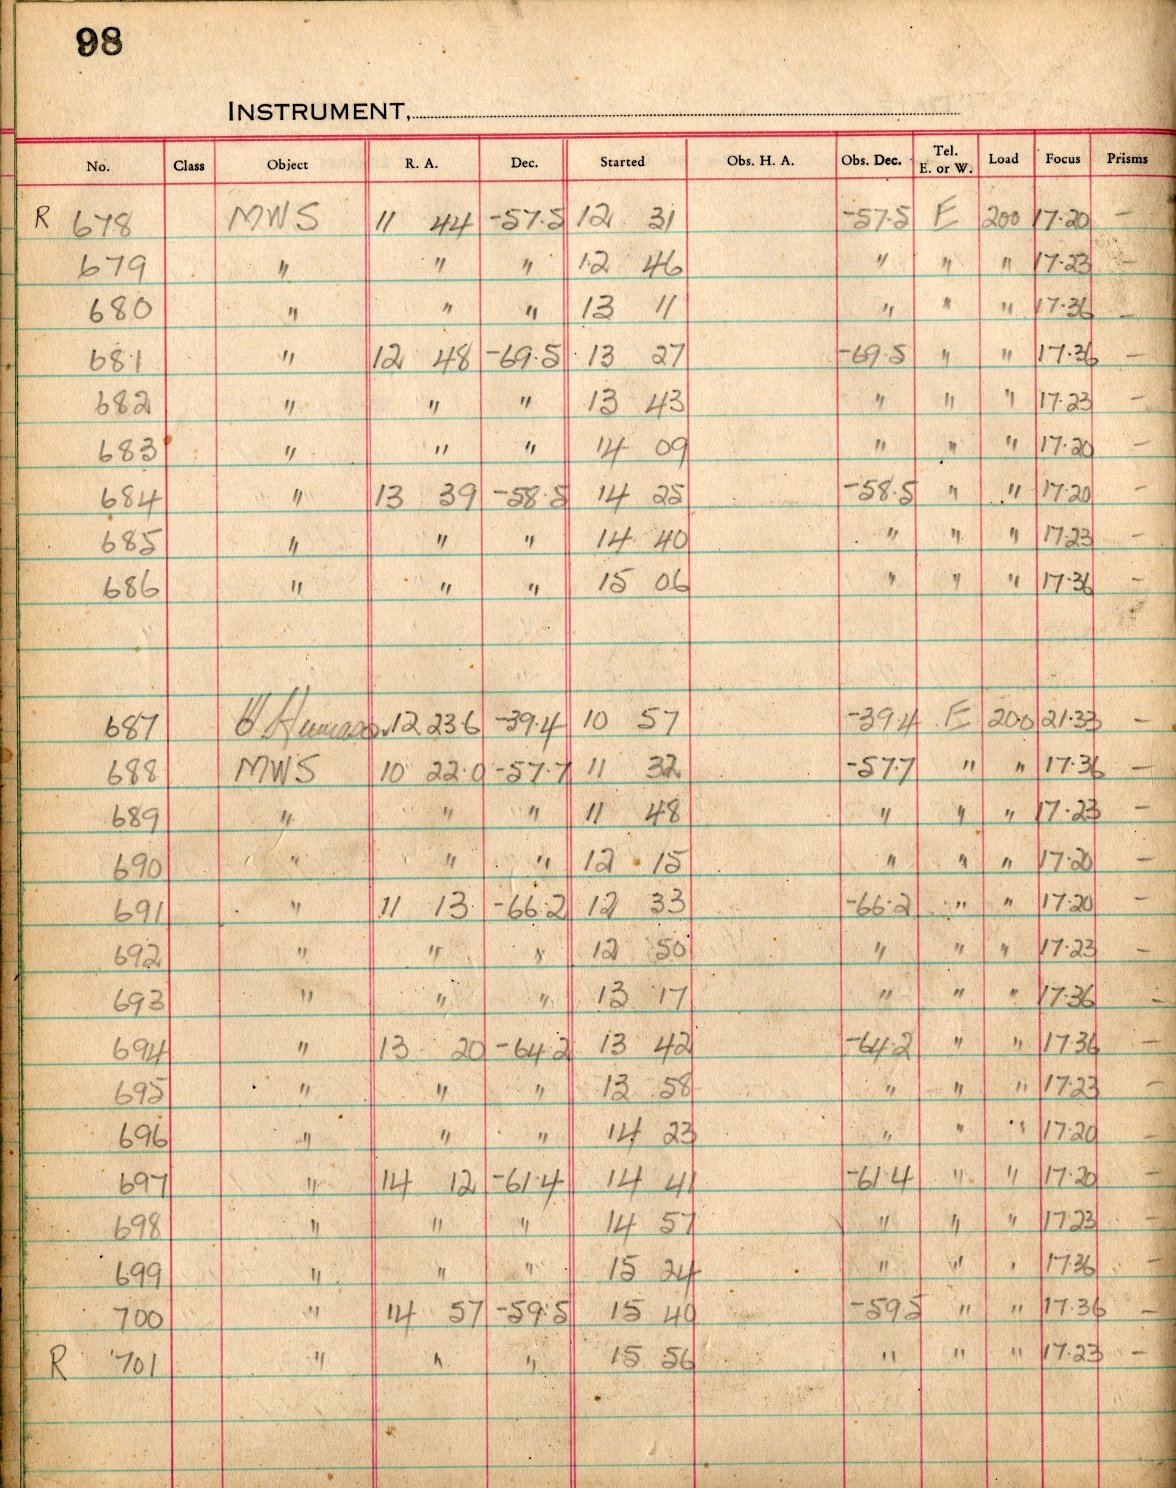 98
INSTRUMENT,
No. Class Object R. A. Dec. Started Obs. H. A. Obs. Dec. Tel. E. or W. Load Focus Prisms
R 678 MWS 11 44 -57.5 12 31 -57.5 E 200 17.20 –
679 " " " 12 46 " " " 17.23 –
680 " " " 13 11 " " " 17.36 –
681 " 12 48 -69.5 13 27 -69.5 " " 17.36 –
682 " " " 13 43 " " " 17.23 –
683 " " " 14 09 " " " 17.20 –
684 " 13 39 -58.5 14 25 -58.5 " " 17.20 –
685 " " " 14 40 " " " 17.23 –
686 " " " 15 06 " " " 17.36 –
687 12 23.6 -39.4 10 57 -39.4 E 20.0 21.33 –
688 MWS 10 22.0 -57.7 11 32 -57.7 " " 17.36 –
689 " " " 11 48 " " " 17.23 –
690 " " " 12 15 " " " 17.20 –
691 " 11 13 -66.2 12 33 -66.2 " " 17.20 –
692 " " " 12 50 " " " 17.23 –
693 " " " 13 17 " " " 17.36 –
694 " 13 20 -64.2 13 42 -64.2 " " 17.36 –
695 " " " 13 58 " " " 17.23 –
696 " " " 14 23 " " " 17.20 –
697 " 14 12 -61.4 14 41 -61.4 " " 17.20 –
698 " " " 14 57 " " " 17.23 –
699 " " " 15 24 " " " 17.36 –
700 " 14 57 -59.5 15 40 -59.5 " " 17.36 –
R 701 " " " 15 56 " " " 17.23 –